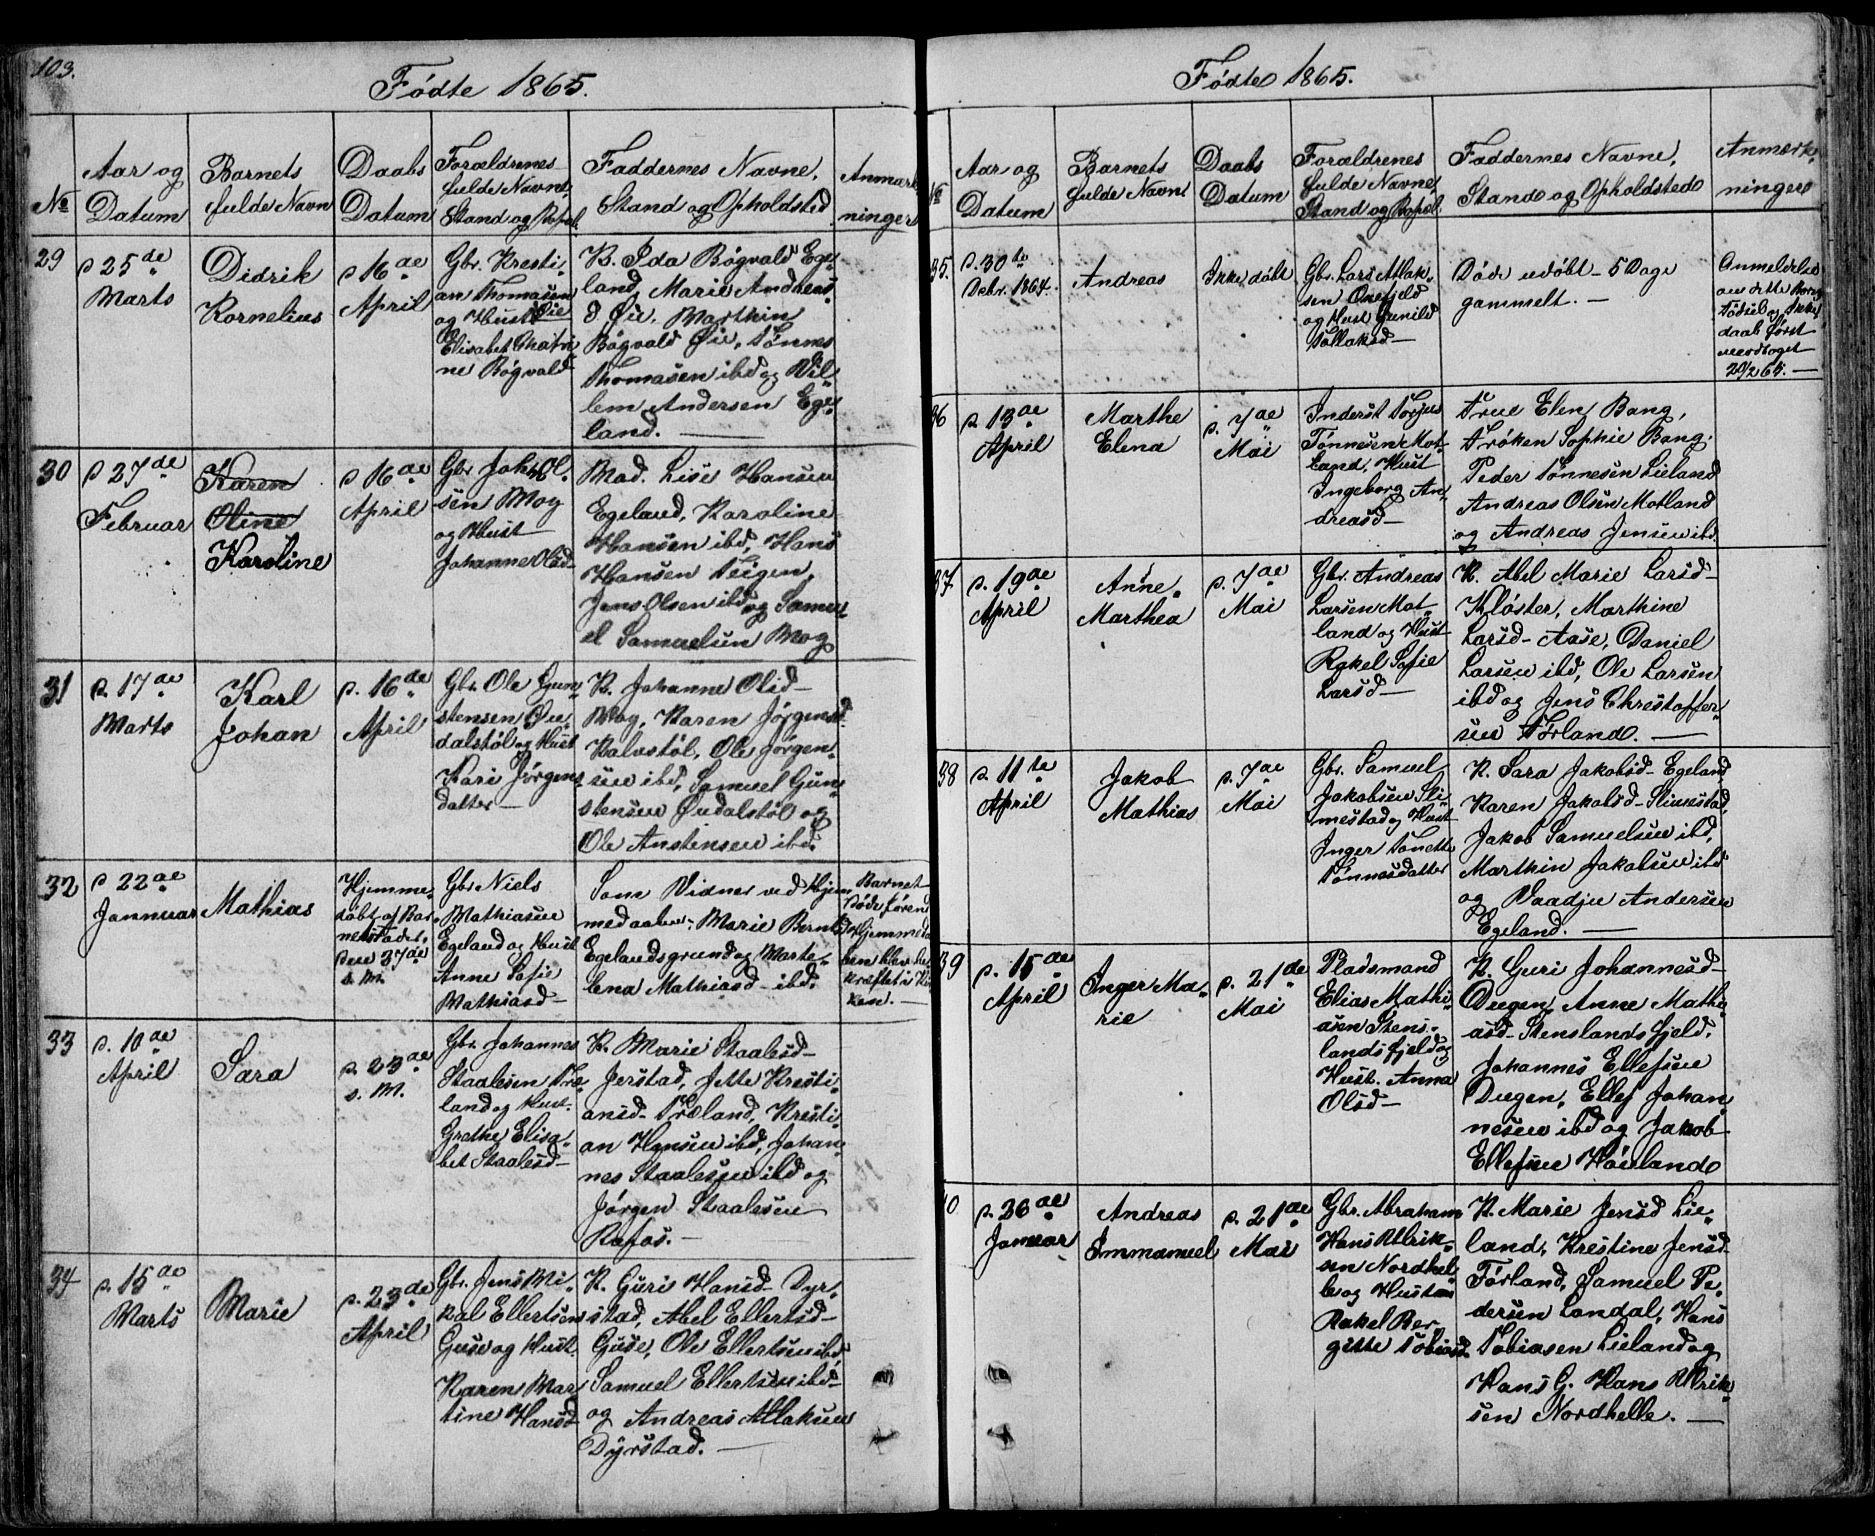 103.
Fødte 1865.
№
Aar og
Datum
Barnets
fulde Navn
Daabs
Datum
Forældrenes
fulde Navne,
Stand og Bopæl.
Faddernes Navne,
Stand og Opholdsted
Anmærk
ninger
29
d 25de
Marts
Didrik
Kornelius
d 16de
April
Gbr. Kresti-
an Thomasen
og Hust Øie
Elisabet Chatri
ne Bøgvald
K. Ida Bøgvald Ege-
land, Marie Andreas
d Øie, Marthin
Bøgvald Øie, Tønnes
Thomasen ibd og Vil-
lem Andersen Ege-
land. —
30
d 27de
Februar
Karen
Oline
Karoline
d 16de
April
Gbr Joh Ol-
sen Mog
og Hust
Johanne Olsd
Mad. Lise Hansen
Egeland, Karoline
Hansen ibd, Hans
Hansen Teigen,
Jens Olsen ibd og Samu-
el Samuelsen Mog
31
d. 17de
Marts
Karl
Johan
d. 16de
April
Gbr. Ole Gun-
stensen Øu-
dalstøl og Hust
Kari Jørgens
datter —
K. Johanne Olsd—
Mog, Karen Jørgensd.
Kalvstøl, Ole Jørgen-
sen ibd, Samuel Gun-
stensen Øudalstøl og
Ole Anstensen ibd.
32
d 22de
Jannuar
Mathias
Hjemme-
døbt af Bar-
nets Fader,
den 27de
s. M.
Gbr Niels
Mathiasen
Egeland og Hust
Anne Sofie
Mathiasd—
Som Vidner ved Hjem-
medaaben: Marie Bernt
Egelandsgrund og Marte-
lena Mathiasd— ibd.
Barnet
Døde førend
Hjemmeda
ben blev be
kræftet i Kir
ken. —
33
d. 10de
April
Sara
d. 23de
s. M.
Gbr. Johannes
Staalesen Træ-
land og Hust.
Grethe Elisa-
bet Staalesd—
K. Marie Staalesd—
Jerstad, Jette Kresti-
ansd— Træland, Kresti-
an Hansen ibd, Johan-
nes Staalesen ibd og
Jørgen Staalesen
Rafos. —
34
d. 15de
Marts
Marie
d. 23de
April
Gbr. Jens Mi-
kal Ellertsen
Guse og Hust.
Karen Mar
tine Hansd
K. Guri Hansd— Dyr-
stad, Abel Ellertsd—
Guse, Ole Ellertsen ibd,
Samuel Ellertsen ibd—
og Andreas Atlaksen
Dyrstad. —
Fødte 1865.
№
Aar og
Datum
Barnets
fulde Navn
Daabs
Datum
Forældrenes
fulde Navne,
Stand og Bopæl.
Faddernes Navne,
Stand og Opholdsted
Anmærk-
ninger
35.
d. 30te
Debr. 1864.
Andreas
Ikke døbt
Gbr. Lars Atlak-
sen Oxefjeld
og Hust Gunild
Tollaksd—
Døde udøbt— 5 Dage
gammelt. —
Anmeldelse
om dette Barns
Fødsel og Ikke
daab først
modtaget
20/2 65. —
36
d. 13de
April
Marthe
Elena
d. 7de
Mai
Inderst Torjus
Tønnesen Mot-
land, Hust
Ingeborg An-
dreasd—
Frue Elen Bang,
Frøken Sophie Bang.
Peder Tønnesen Lieland
Andreas Olsen Motland
og Andreas Jensen ibd.
37
d. 19de
April
Anne
Marthea
d. 7de
Mai
Gbr. Andreas
Larsen Mot-
land og Hust
Rakel Sofie
Larsd—
K. Abel Marie Larsd—
Kløster, Marthine
Larsd— Aase, Daniel
Larsen ibd, Ole Larsen
ibd og Jens Christoffer-
sen Førland. —
38
d. 11te
April
Jakob
Mathias
d. 7de
Mai
Gbr. Samuel
Jakobsen Sli-
mestad og Hust
Inger Tonette
Tønnesdatter
K. Sara Jakobsd— Egeland
Karen Jakobsd— Slimestad
Jakob Samuelsen ibd,
Marthin Jakobsen ibd
og Vaadju Andersen
Egeland. —
39
d. 15de
April
Inger Ma-
rie
d. 21de
Mai
Pladsmand
Elias Mathi-
asen Stens-
landsfjeld og
Hust. Anna
Olsd—
K. Guri Johannesd—
Dugen, Anne Mathi-
asd— Stenslandsfjeld.
Johannes Ellefsen
Dugen, Ellef Johan-
nesen ibd og Jakob
Ellefsen Høiland
40
d. 26de
Januar
Andreas
Immanuel
d. 21de
Mai
Gbr. Abraham
Hans Ulrik-
sen Nordhel-
le og Hustru
Rakel Ber
gitte Tobiasd
K. Marie Jensd Lie-
land, Krestine Jensd—
Førland, Samuel Pe-
dersen Landal, Hans
Tobiasen Lieland og
Hans G. Hans Ulrik-
sen Nordhelle. —